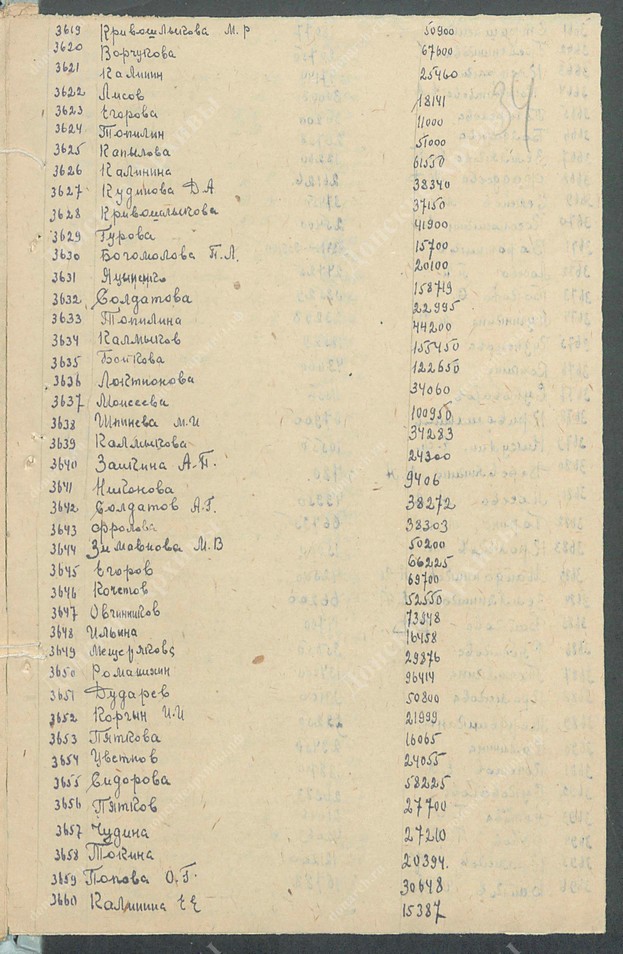 3619 Кривошлыкова М.Р 50900
3620 Ворчукова 67600
3621 Калинин 25460
3622 Лисов 18141
3623 Егорова 11000
3624 Топилин 51000
3625 Капылова 61550
3626 Калинина 38340
3627 Кудинова Д А 37150
3628 Кривошлыкова 41900
3629 Гурова 15700
3630 Богомолова П.Л. 20100
3631 158719
3632 Солдатова 22995
3633 Топилина 44200
3634 Калмыков 155450
3635 Бокова 122650
3636 Локтионова 34060
3637 Моисеева 100950
3638 Шпинева М.И 34283
3639 Калмыкова 24300
3640 Заикина А.П. 9406
3641 Никонова 38272
3642 Солдатов А.Г. 38303
3643 Фролова 50200
3644 Зимовнова М.В 66225
3645 Егоров 69700
3646 Кочетов 52550
3647 Овчинников 73548
3648 Ильина 16458
3649 Мещерякова 29876
3650 Романихин 96414
3651 Бударев 50800
3652 Коргын И.И 21999
3653 Пяткова 16065
3654 Цветков 24055
3655 Сидорова 58225
3656 Пятков 27700
3657 Чудина 27210
3658 Токина 20394.
3659 Попова О.Г. 30648
3660 Калинина Е Е 15387